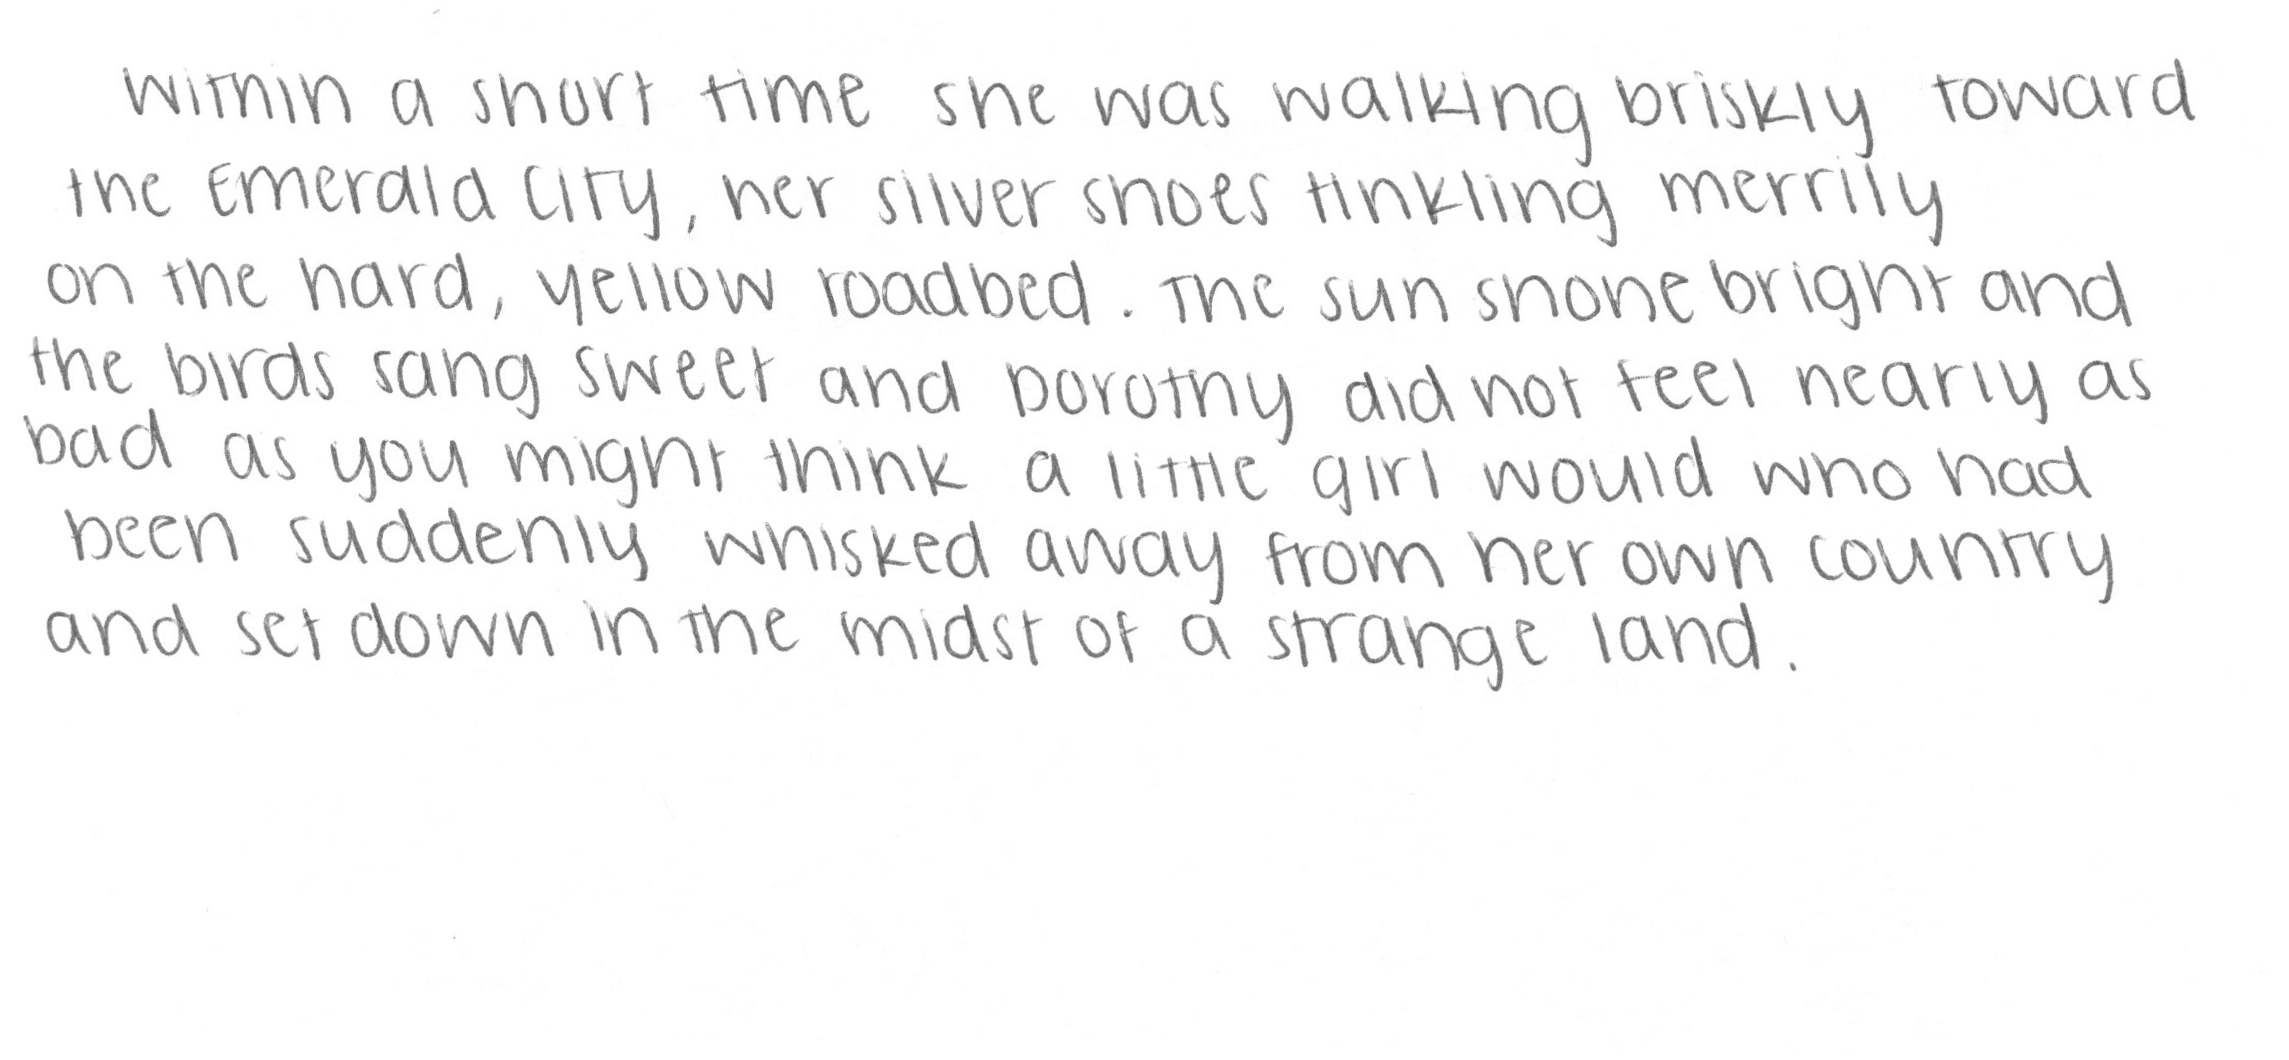 Within a short time she was walking briskly toward
the Emerald City, her silver shoes tinkling merrily
on the hard, yellow roadbed. The sun shone bright and
the birds sang sweet and Dorothy did not feel nearly as
bad as you might think a little girl would who had
been suddenly whisked away from her own country
and set down in the midst of a strange land.